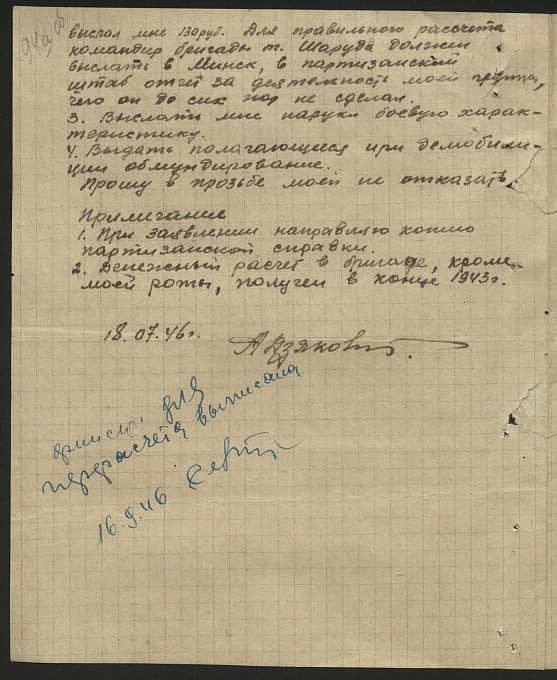 выслал мне 130 руб. Для правильного рассчета
командир бригады т. Шаруда должен
выслать в Минск, в партизанский
штаб отчет за деятельность моей группы,
чего он до сих пор не сделал.
3. Выслать мне наруки боевую харак-
теристику.
4. Выдать полагающиеся при демобили-
ции обмундирование.
Прошу в прозьбе моей не отказать.
Примичание
1. При заявлении направляю копию
партизанской справки.
2. Денежный расчет в бригаде, кроме
моей роты, получен в конце 1943 г.
18.07.46 г.
АДзякович
для
перерасчета выписана
16.9.46